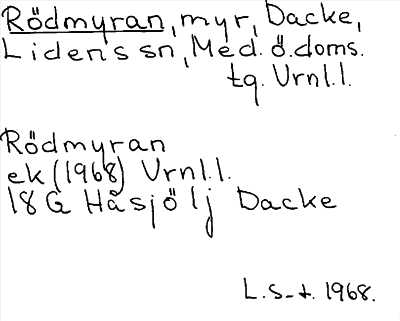 Rödmyran, myr, Dacke,
Lidens sn, Med. ö. doms.
tg. Vrnl.l.
Rödmyran
ek (1968) Vrnl.l.
18 G Håsjö lj Dacke
L. S-t. 1968.